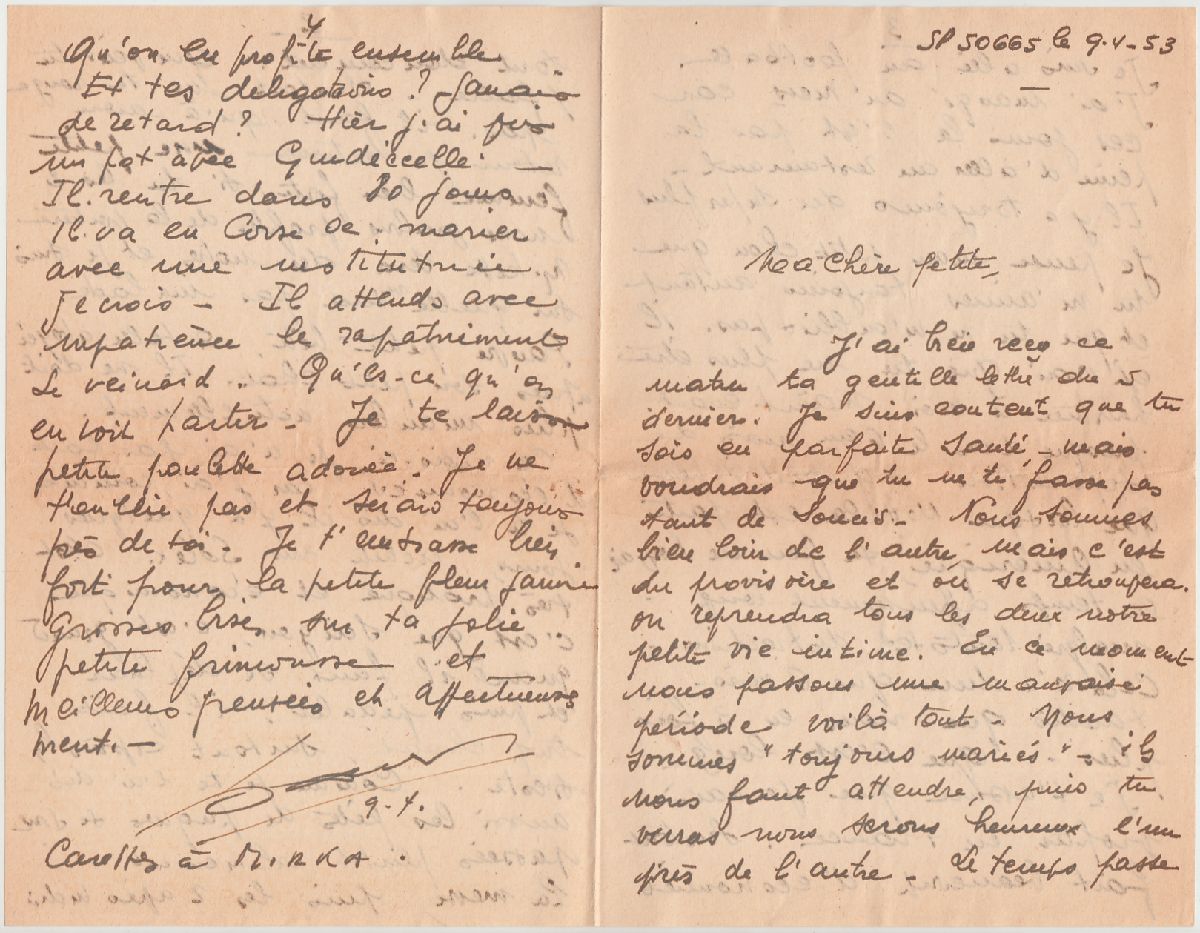 SP 50665 le 9-4-53
Ma Chère petite,
J'ai bien reçu ce
matin ta gentille lettre du 5
dernier. Je suis content que tu
sois en parfaite santé, mais
voudrais que tu ne te fasse pas
tant de soucis - Nous sommes
bien loin de l'autre, mais c'est
du provisoire et on se retrouvera.
on reprendra tous les deux notre
petite vie intime. En ce moment
nous passons une mauvaise
période voilà tout - Nous
sommes "toujours mariés" - ils
nous faut attendre, puis tu
verras nous serons heureux l'un
près de l'autre - Le temps passe
4
Qu'on en profite ensemble
Et tes délégations ? Jamais
de retard ? Hier j'ai pris
un pot avec
Il rentre dans jours
il va en Corse se marier
avec une institutrice
Je crois - Il attends avec
impatience le rapatriment
Le veinard - Qu'ils-ce qu'on
en voit partir - Je te laisse
petite poulette adorée. Je ne
t'oublie pas et serais toujours
près de toi - Je t'embrasse bien
fort pour la petite fleur jaunie
Grosses bises sur ta jolie
petite frimousse et
Meilleurs pensées et affectueuse
ment. -
9-4.
Caresses à MIRKA.